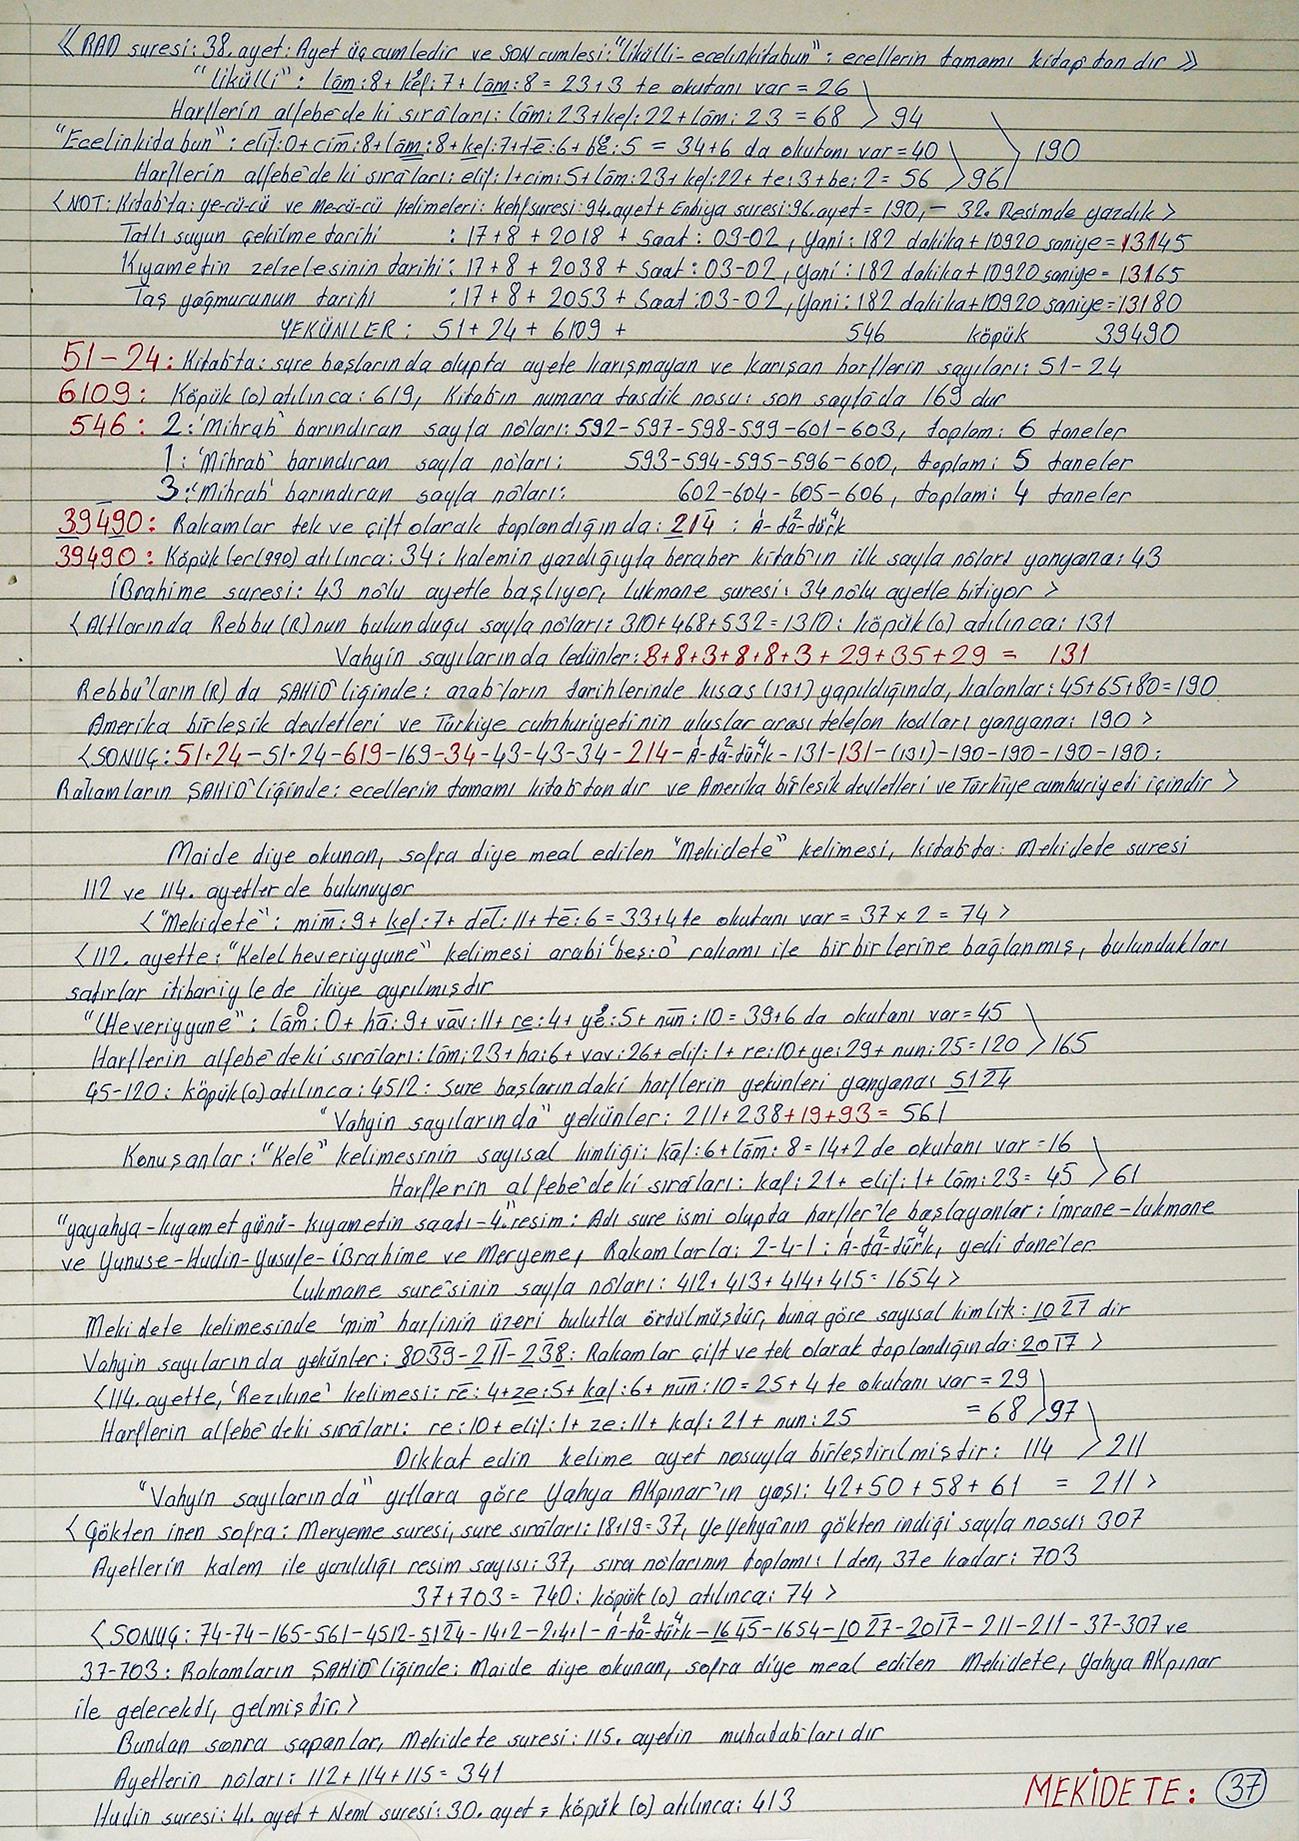 《 RAD suresi: 38. ayet: Ayet üç cumledir ve SON cumlesi: "likülli-ecelinkitabun": ecellerin tamamı kitap tan dır 》
"likülli": lām: 8 + kef: 7 + lām: 8 = 23+3 te okutanı var = 26
Harflerin alfebe'de ki sıraları: lām: 23 + kef: 22 + lām: 23 = 68 > 94
"Ecelinkitabun": elif: 0 + cim: 8 + lām: 8 + kef: 7 + te: 6 + be: 5 = 34+6 da okutanı var = 40 > 190
Harflerin alfebe'de ki sıraları: elif: 1 + cim: 5 + lām: 23 + kef: 22 + te: 3 + be: 2 = 56 > 96
< NOT: Kitab'ta: ye-cü-cü ve me-cü-cü kelimeleri: kehf suresi: 94. ayet + Enbiya suresi: 96. ayet = 190, - 32. Resimde yazdık >
Tatlı suyun çekilme tarihi : 17+8 + 2018 + Saat: 03-02, yani: 182 dakika + 10920 saniye = 13145
Kıyametin zelzelesinin tarihi: 17+8 + 2038 + Saat: 03-02, yani: 182 dakika + 10920 saniye = 13165
Taş yağmurunun tarihi : 17+8 + 2053 + Saat: 03-02, yani: 182 dakika + 10920 saniye = 13180
YEKÜNLER: 51 + 24 + 6109 + 546 köpük 39490
51-24: Kitab'ta: sure başlarında olupta ayete karışmayan ve karışan harflerin sayıları: 51-24
6109: Köpük (o) atılınca: 619, Kitab'ın numara tasdik nosu: son sayfada 169 dur
546: 2: 'Mihrab' barındıran sayfa nôları: 592-597-598-599-601-603, toplam: 6 taneler
1: 'Mihrab' barındıran sayfa nôları: 593-594-595-596-600, toplam: 5 taneler
3: 'Mihrab' barındıran sayfa nôları: 602-604-605-606, toplam: 4 taneler
39490: Rakamlar tek ve çift olarak toplandığında: 214 : A-ta-türk
39490: Köpükler (990) atılınca: 34: kalemin yazdığıyla beraber kitab'ın ilk sayfa nôları yanyana: 43
İBrahime suresi: 43 nolu ayetle başlıyor, lukmane suresi: 34 nolu ayetle bitiyor >
< Altlarında Rebbu (R) nun bulunduğu sayfa nôları: 310+468+532=1310: köpük (o) atılınca: 131
Vahyin sayılarında ledünler: 8+8+3+8+8+3+29+35+29 = 131
Rebbu'ların (R) da ŞAHİD'liğinde: arab'ların tarihlerinde kısas (131) yapıldığında, kalanlar: 45+65+80=190
Amerika birleşik devletleri ve Türkiye cumhuriyetinin uluslar arası telefon kodları yanyana: 190 >
< SONUÇ: 51-24-51-24-619-169-34-43-43-34-214-A-ta-türk-131-131-(131)-190-190-190-190:
Rakamların ŞAHİD'liğinde: ecellerin tamamı kitab'tan dır ve Amerika birleşik devletleri ve Türkiye cumhuriyeti içindir >
Maide diye okunan, sofra diye meal edilen "Mekidete" kelimesi, kitab'ta: Mekidete suresi
112 ve 114. ayetlerde bulunuyor
< "Mekidete": mim: 9 + kef: 7 + del: 11 + te: 6 = 33+4 te okutanı var = 37 x 2 = 74 >
< 112. ayette: "Kelelheveriyyune" kelimesi arabi 'beş: o' rakamı ile birbirlerine bağlanmış, bulundukları
satırlar itibariyle de ikiye ayrılmıştır
"lHeveriyyune": lām: 0 + hā: 9 + vav: 11 + re: 4 + ye: 5 + nūn: 10 = 39+6 da okutanı var = 45
Harflerin alfebe'deki sıraları: lām: 23 + ha: 6 + vav: 26 + elif: 1 + re: 10 + ye: 29 + nun: 25 = 120 > 165
45-120: köpük (o) atılınca: 4512: Sure başlarındaki harflerin yekünleri yanyana: 5124
"Vahyin sayılarında" yekünler: 211+238+19+93 = 561
Konuşanlar: "Kele" kelimesinin sayısal kimliği: kāf: 6 + lām: 8 = 14+2 de okutanı var = 16
Harflerin alfebe'deki sıraları: kaf: 21 + elif: 1 + lām: 23 = 45 > 61
"yayahya-kıyamet günü-kıyametin saatı-4." resim: Adı sure ismi olupta harfler'le başlayanlar: imrane-lukmane
ve Yunuse-Hudin-Yusufe-İBrahime ve Meryeme, Rakamlarla: 2-4-1: A-ta-türk, yedi taneler
Lukmane sure'sinin sayfa nôları: 412+413+414+415=1654 >
Mekidete kelimesinde 'mim' harfinin üzeri bulutla örtülmüştür, buna göre sayısal kimlik: 1027 dir
Vahyin sayılarında yekünler: 8039-211-238: Rakamlar çift ve tek olarak toplandığında: 2017 >
< 114. ayette, 'Rezıkıne' kelimesi: re: 4 + ze: 5 + kaf: 6 + nūn: 10 = 25+4 te okutanı var = 29
Harflerin alfebe'deki sıraları: re: 10 + elif: 1 + ze: 11 + kaf: 21 + nun: 25 = 68 > 97
Dikkat edin kelime ayet nosuyla birleştirilmiştir: 114 > 211
"Vahyin sayılarında" yıllara göre Yahya AKpınar'ın yaşı: 42+50+58+61 = 211 >
< Gökten inen sofra: Meryeme suresi, sure sıraları: 18+19=37, yeyehya'nın gökten indiği sayfa nosu: 307
Ayetlerin kalem ile yazıldığı resim sayısı: 37, sıra nolarının toplamı: 1 den, 37 e kadar: 703
37+703=740: köpük (o) atılınca: 74 >
< SONUÇ: 74-74-165-561-4512-5124-14+2-2+4+1-A-ta-türk-1645-1654-1027-2017-211-211-37-307 ve
37-703: Rakamların ŞAHİD'liğinde: Maide diye okunan, sofra diye meal edilen Mekidete, Yahya AKpınar
ile gelecekti, gelmiştir. >
Bundan sonra sapanlar, Mekidete suresi: 115. ayetin muhatab'ları dır
Ayetlerin nôları: 112+114+115=341
Hudin suresi: 41. ayet + Neml suresi: 30. ayet = köpük (o) atılınca: 413
MEKİDETE: 37